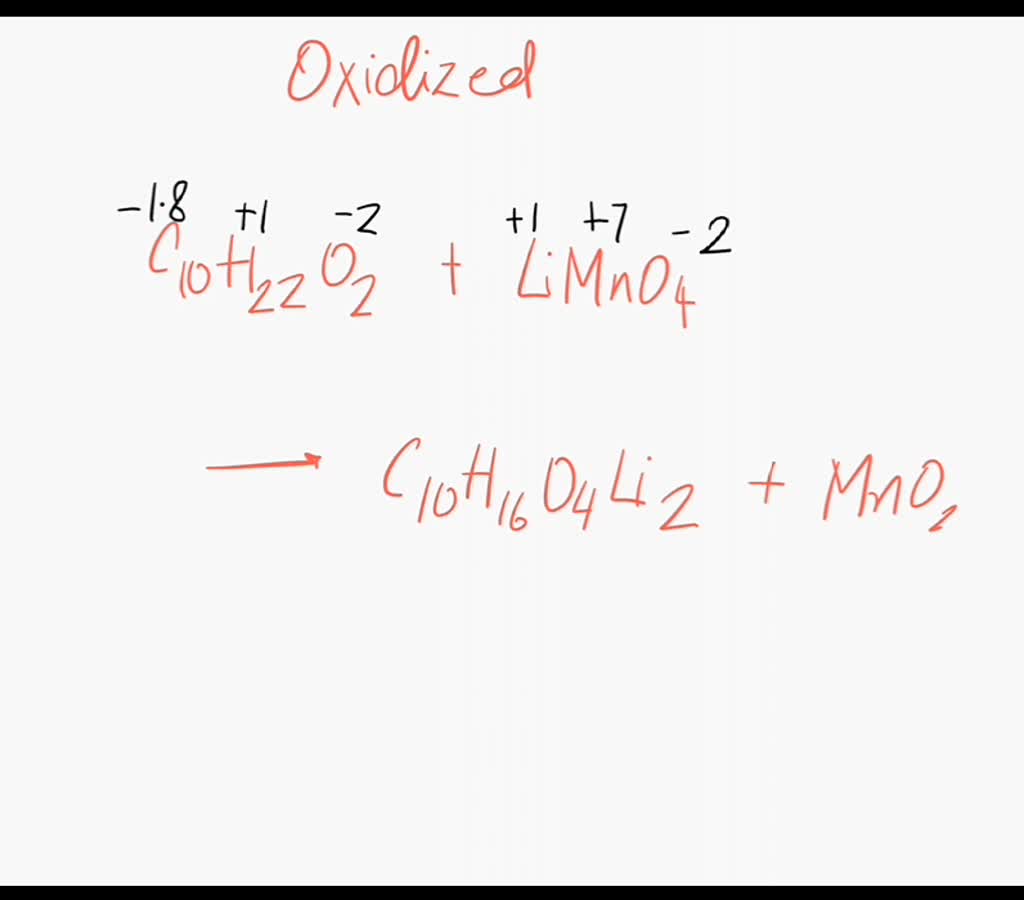 Oxidized
-1.8 +1 -2 +1 +7 -2
C10H22O2 + LiMnO4
→ C10H16O4Li2 + MnO2